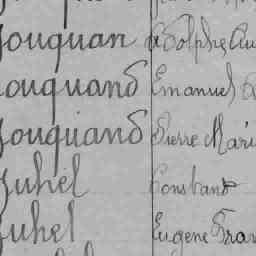 Jouquan Adolphe Au
Jouquand Emanuel
Jouquand Pierre Mari
Juhel Constant
Juhel Eugene Fran